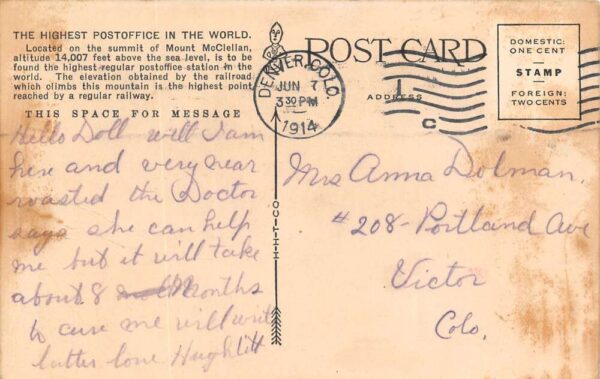 THE HIGHEST POSTOFFICE IN THE WORLD.
Located on the summit of Mount McClellan,
altitude 14,007 feet above the sea level, is to be
found the highest regular postoffice station in the
world. The elevation obtained by the railroad
which climbs this mountain is the highest point
reached by a regular railway.
THIS SPACE FOR MESSAGE
Hello Doll well I am
here and very near
roasted the Doctor
says she can help
me but it will take
about 8 months
to cure me will writ
latter love Hugh
H-H-T-CO
POST CARD
ADDRESS
DENVER, COLO.
JUN 7
3 30 PM
1914
1
C
DOMESTIC:
ONE CENT
STAMP
FOREIGN:
TWO CENTS
Mrs Anna Dolman.
#208-Portland Ave
Victor
Colo.